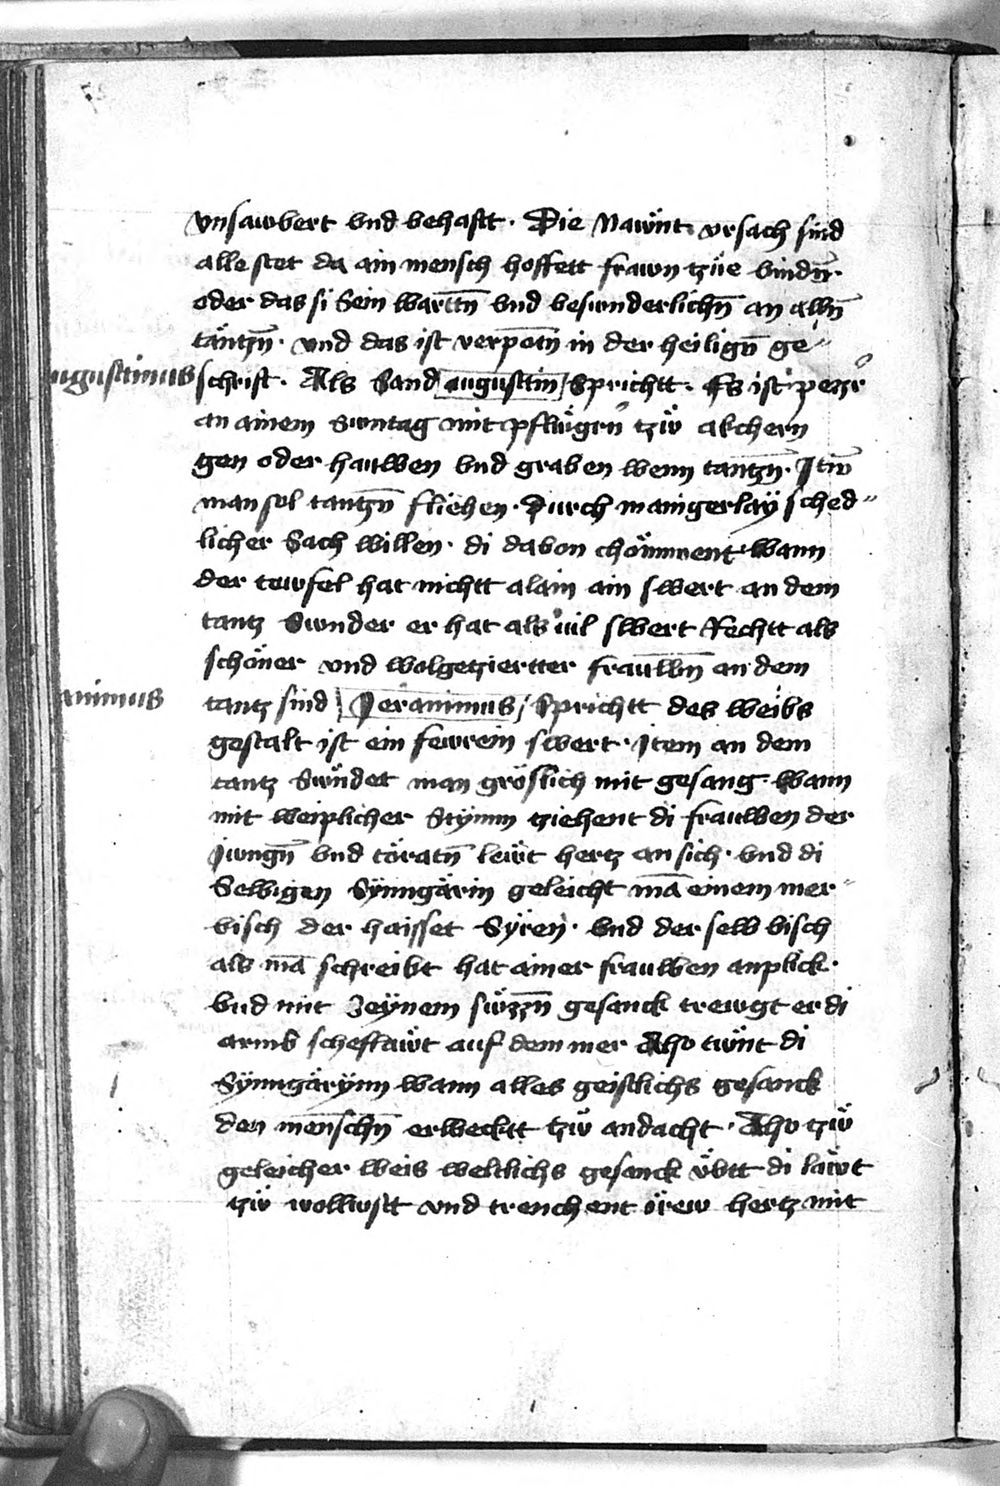 vnsawbert vnd behafft. Die Nawnt vrsach sind
alle stet da ain mensch hoffett frawn tzüe vindn̄.
oder das si Sein warttn̄ vnd besunderlichn̄ an alln̄
täntzn̄. vnd das ist verpotn̄ in der heilign̄ ge-
ugustinus schrift. Als Sand augustin Sprichtt. Es ist pezzr
an ainem Svntag mit pflügen tzü akchern
gen oder hauwen vnd graben wenn tantzn̄. Itm̄
man sol tantzn̄ fliehen. Durch maingerlaÿ sched-
licher Sach willen. di dauon chömment wann
der tewfel hat nichtt alain ain swert an dem
tantz Svnder er hat als vil swert Rechtt als
schöner vnd wolgetziertter frauwn̄ an dem
animus tantz sind Jeranimus Sprichtt des weibs
gestalt ist ein fewrein swert. Item an dem
tantz Sündet man gröslich mit gesang. wann
mit weiplicher Stÿmm tziehent di frauwen der
Jungn̄ vnd töratn̄ lewt hertz an sich. vnd di
Selbigen Sÿnngärin geleicht mā einem mer-
visch der haisset Sÿren. vnd der selb visch
als mā schreibt hat ainer frauwen anplick.
vnd mit Zeÿnem süzzn̄ gesanck trewgt er di
armb scheflawt auf dem mer Also tünt di
Sÿnngärÿnn wann alles geistlichs gesanck
den menschn̄ erwecktt tzü andacht. Also tzü
geleicher weis weltlichs gesanck übtt di läwt
tzü wollust vnd trenchent irew hertz mit